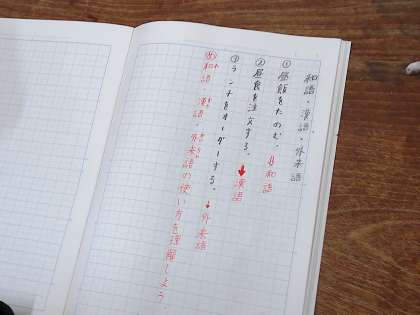 和語・漢語・外来語
①昼飯をたのむ。↓和語
②昼食を注文する。↓漢語
③ランチをオーダーする。↓外来語
和語・漢語・外来語の使い方を理解しよう。